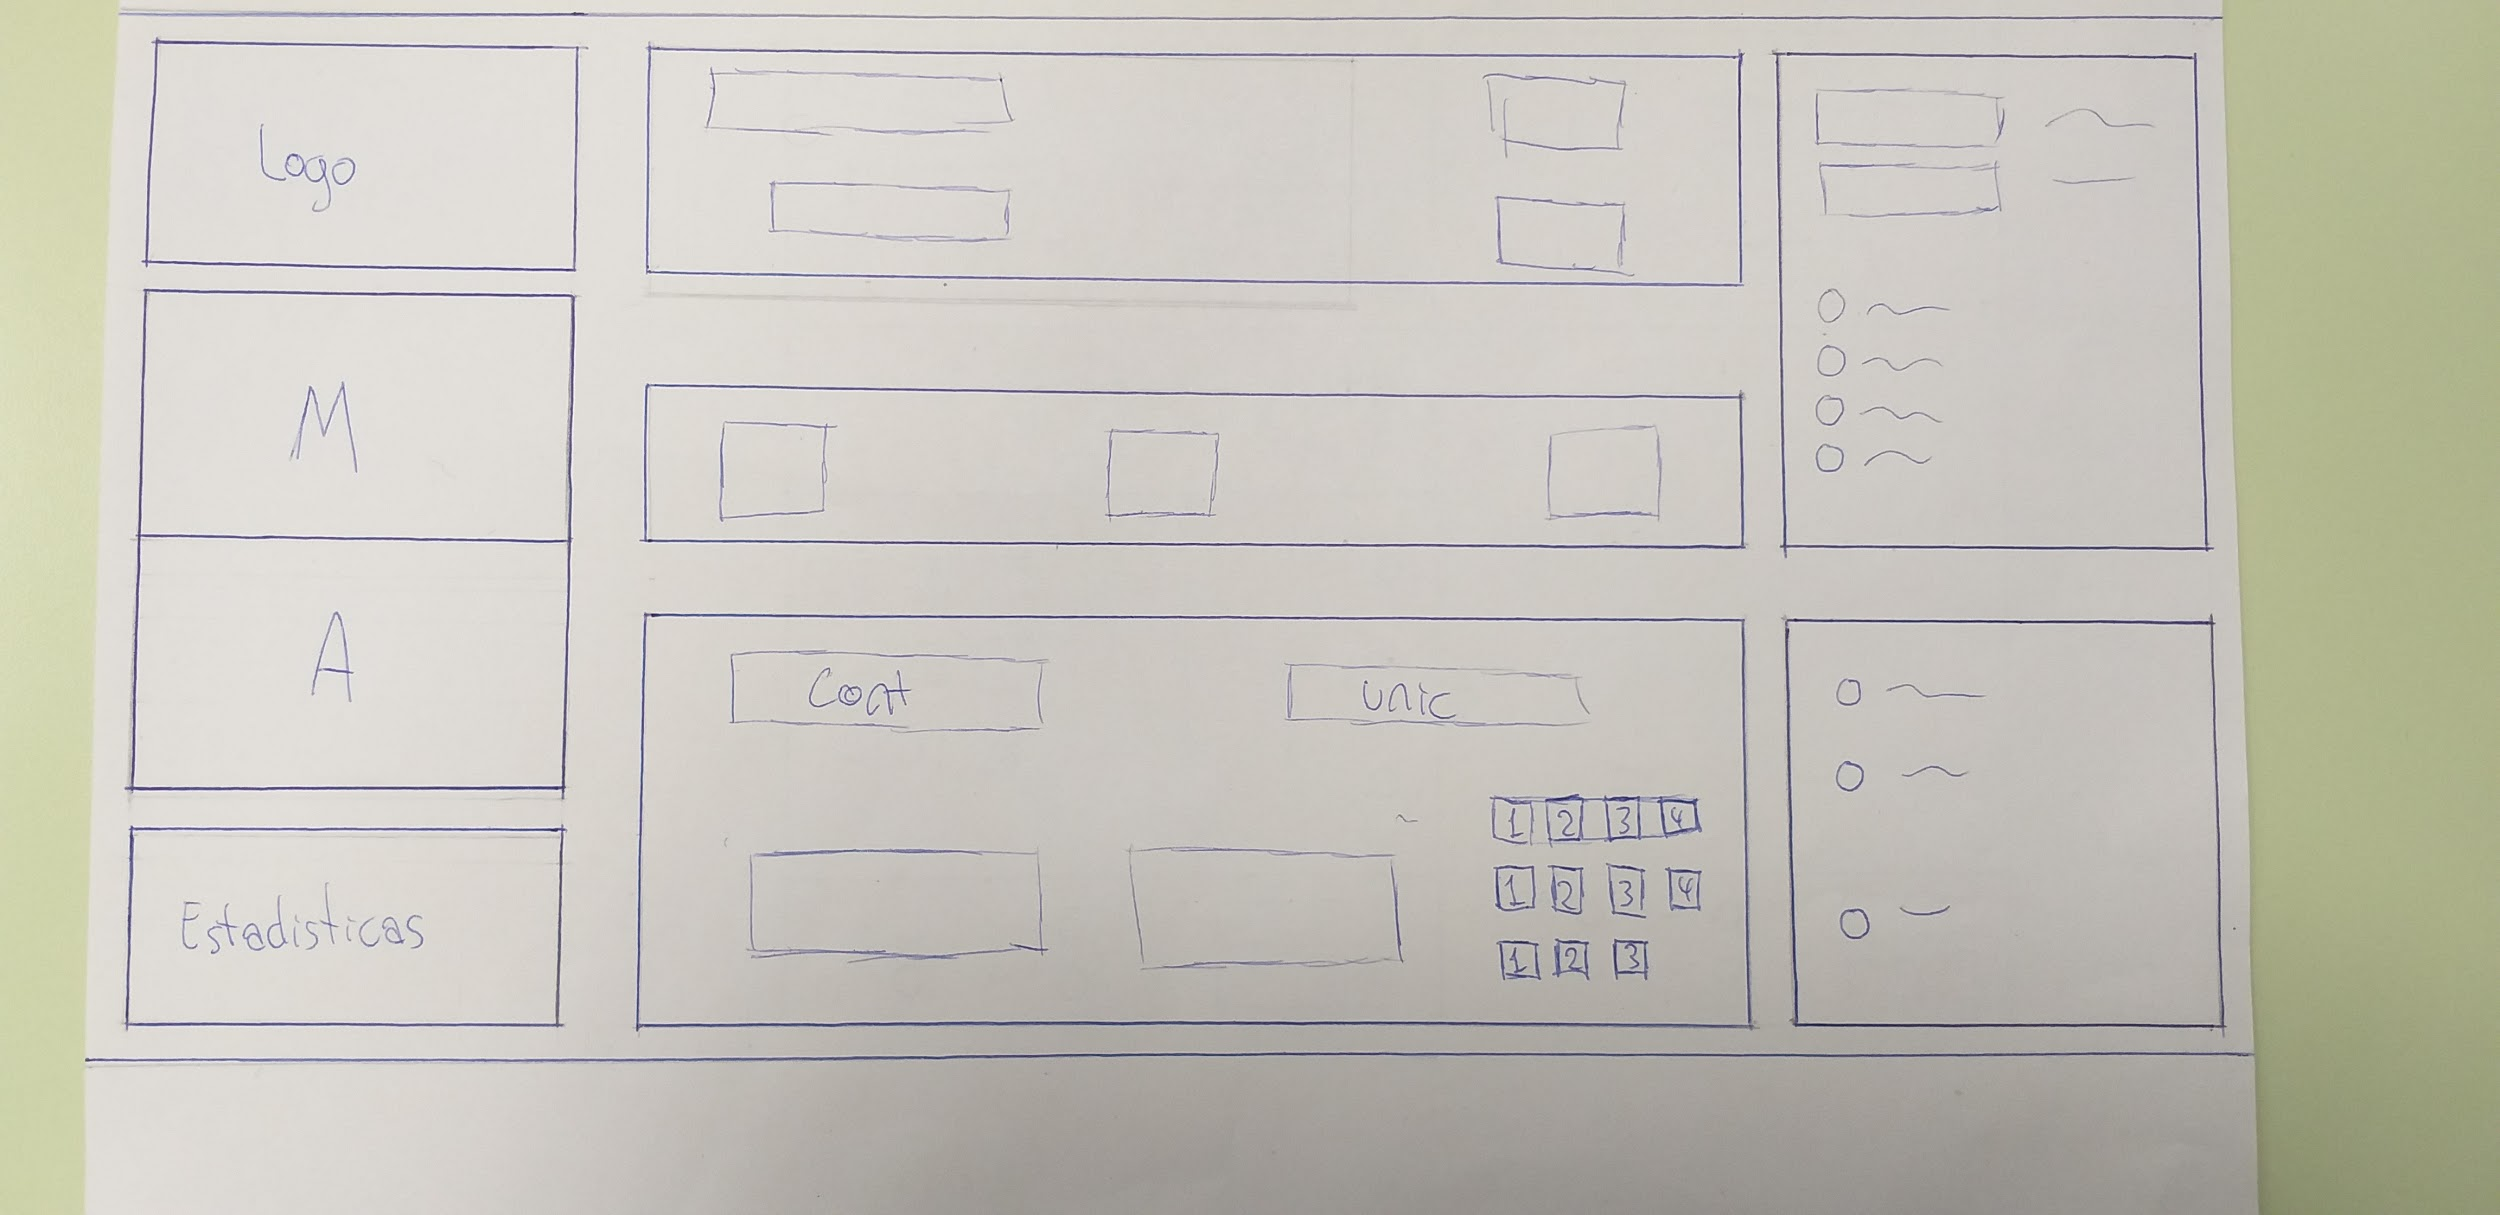 Logo
M
A
Estadisticas
Cont
unic
1 2 3 4
1 2 3 4
1 2 3